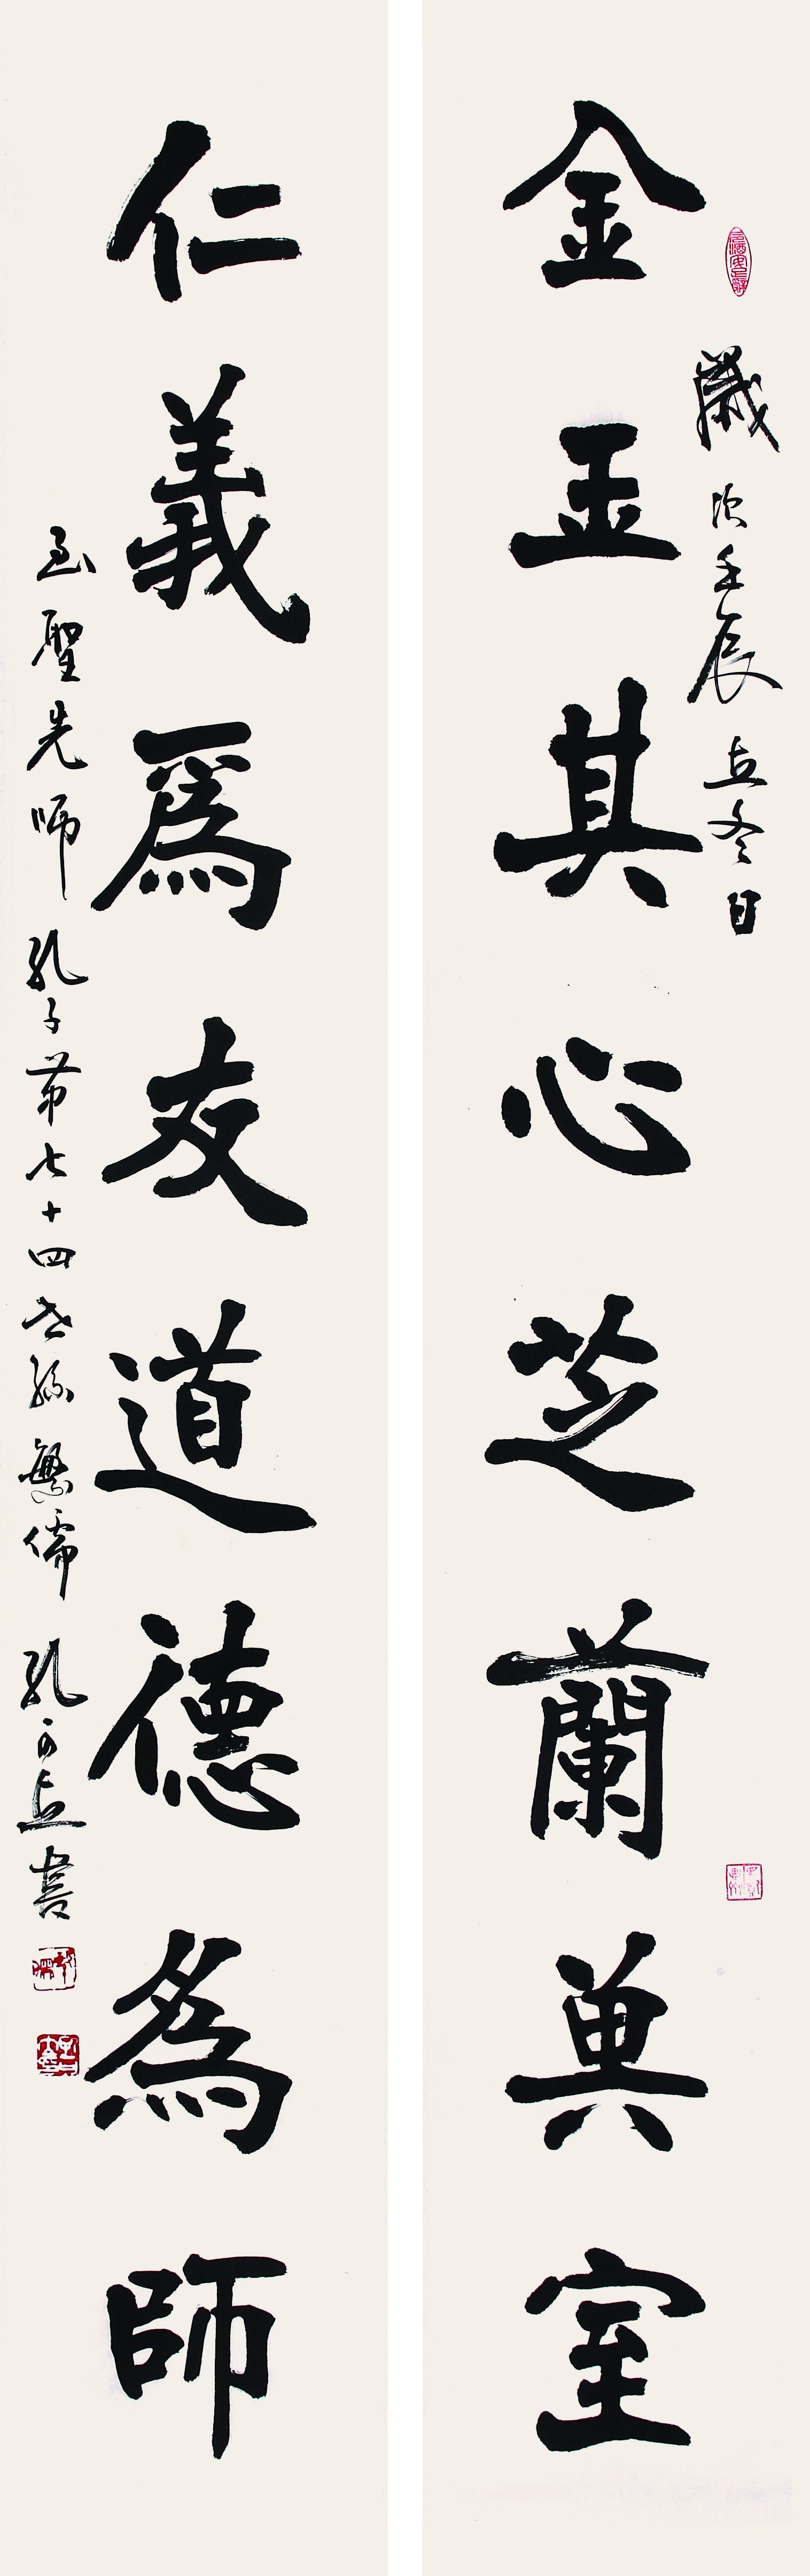 歲次壬辰立冬日
金玉其心芝蘭其室
仁義爲友道德為師
至聖先師孔子第七十四世孫繁儒孔可立書